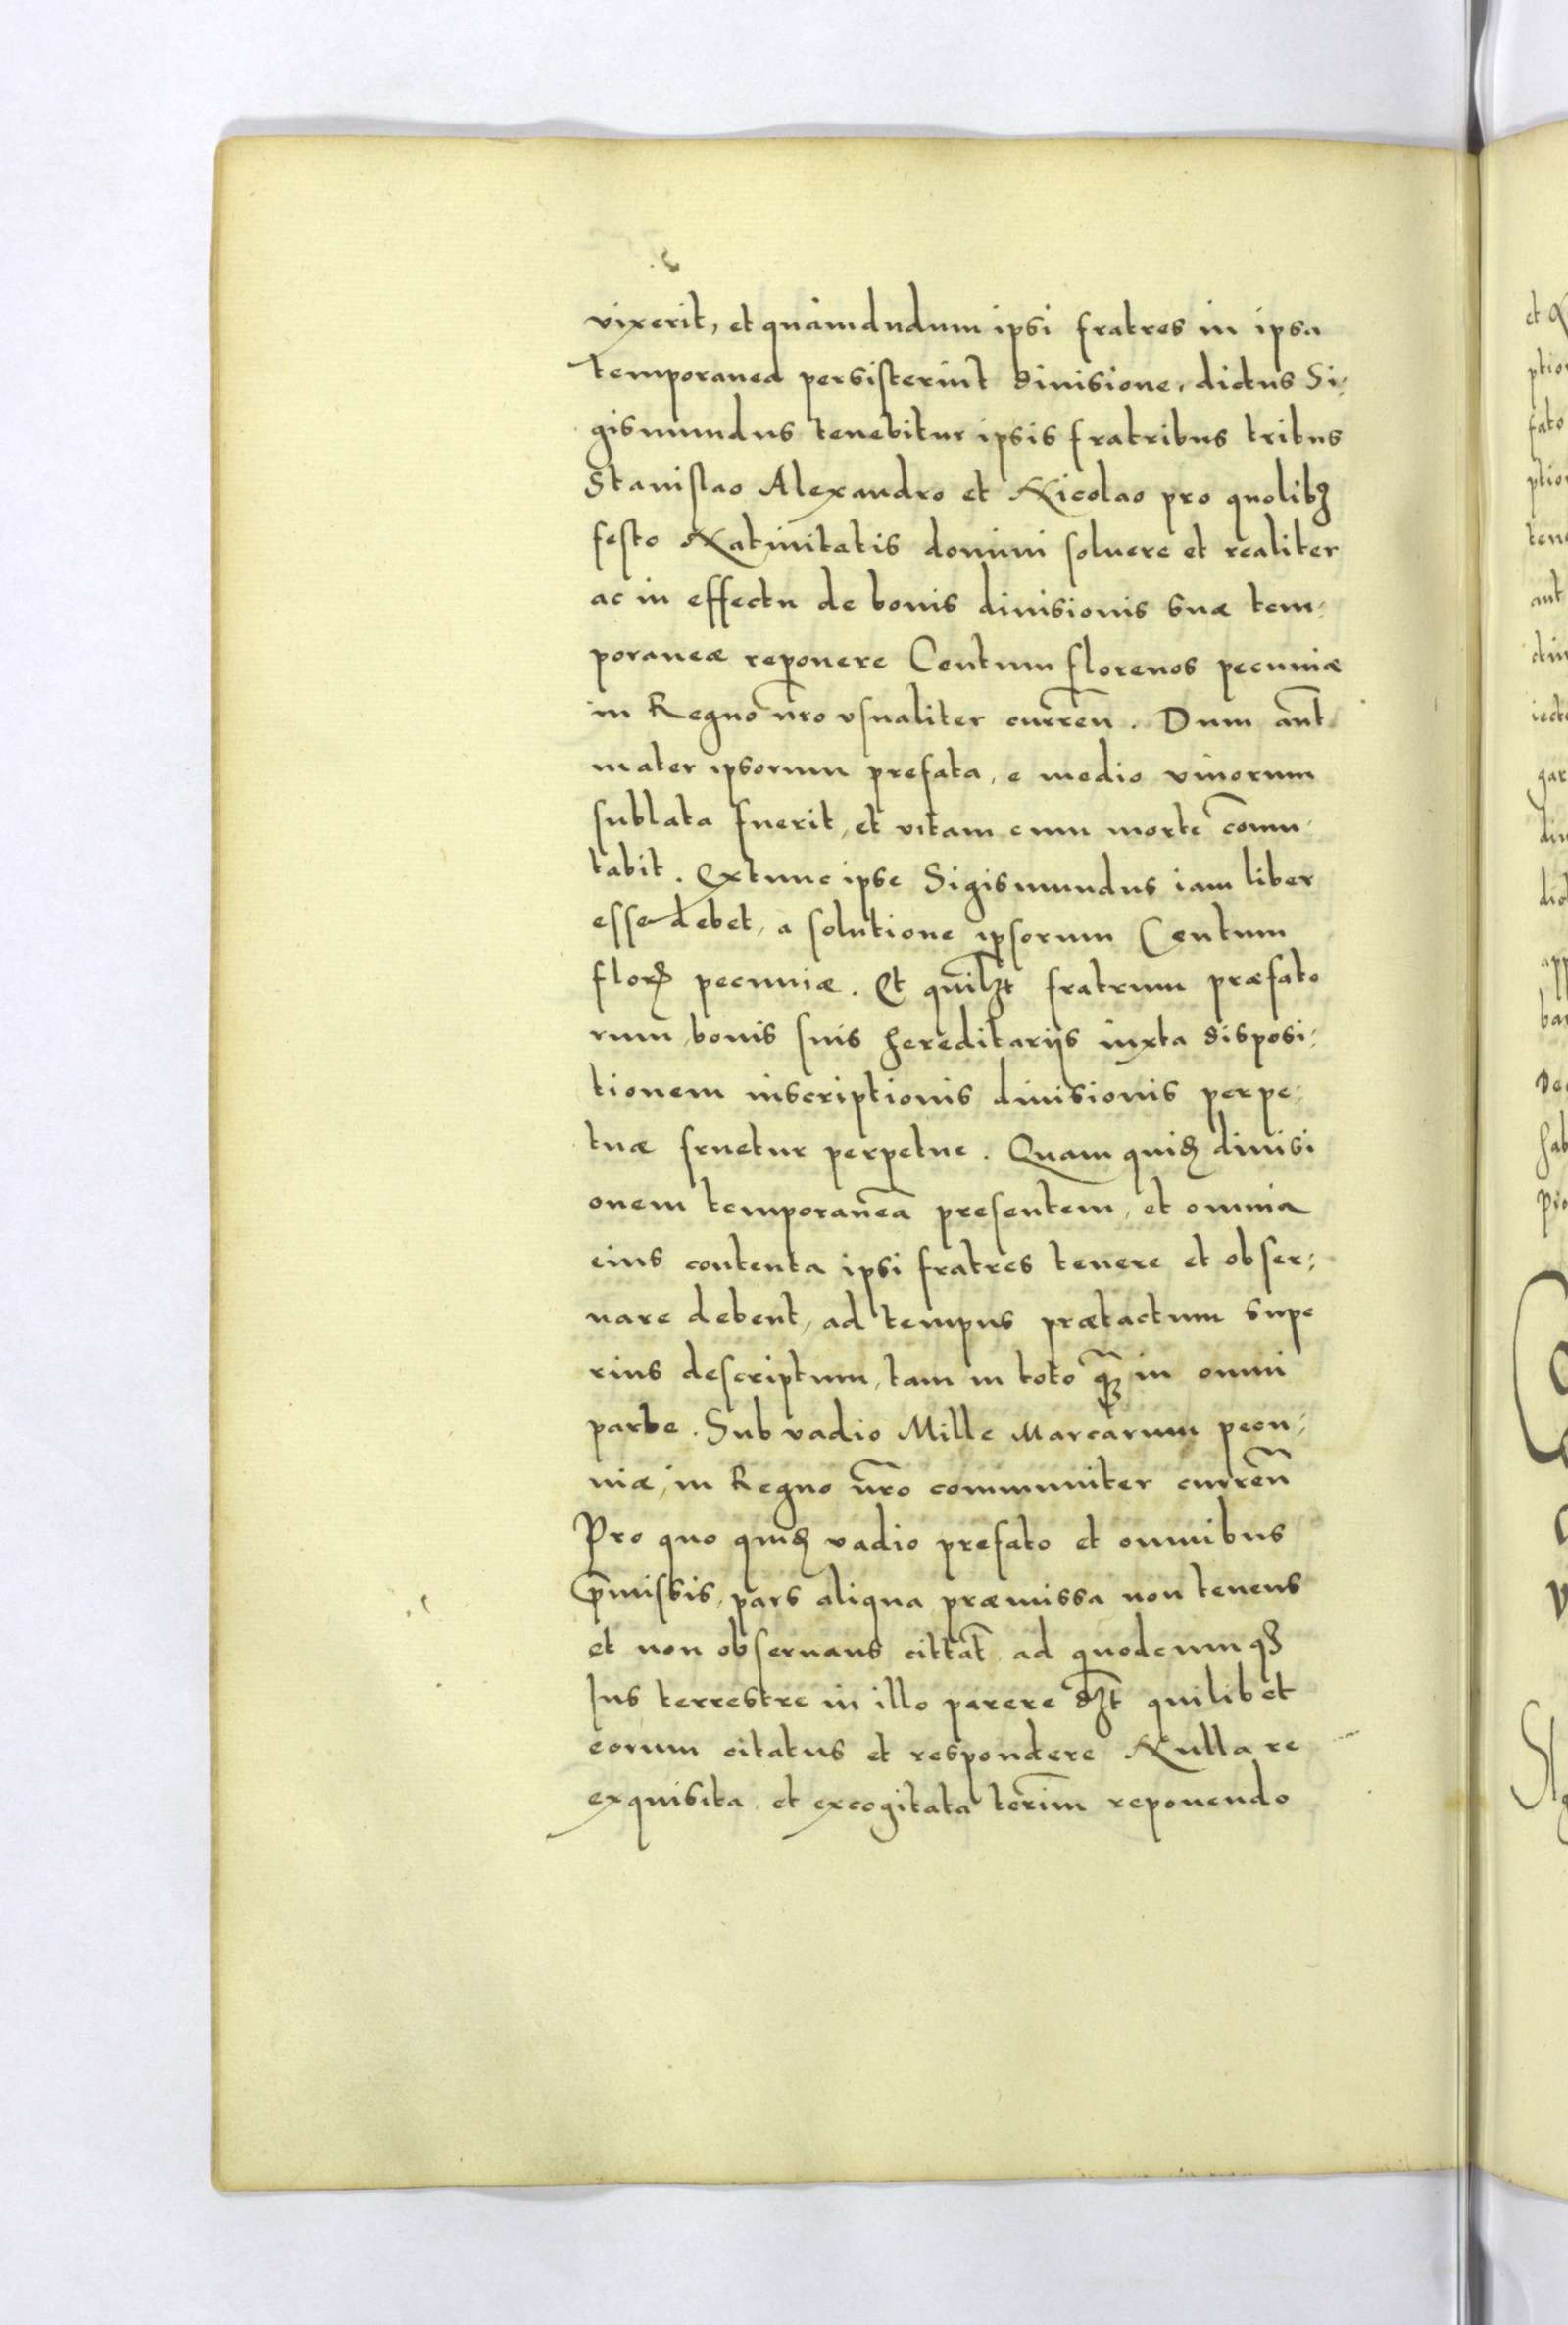 vixerit, et quamdudum ipsi fratres in ipsa
temporanea persisterint diuisione, dictus Si-
gismundus tenebitur ipsis fratribus tribus
Stanislao Alexandro et Nicolao pro quolibꝫ
festo Natiuitatis domini soluere et realiter
ac in effectu de bonis diuisionis suæ tem-
poraneæ reponere Centum florenos pecuniæ
in Regno nr̄o vsualiter curreñ. Dum aut̄
mater ipsorum prefata, e medio viuorum
sublata fuerit, et vitam cum morte com̄u-
tabit. Extunc ipse Sigismundus iam liber
esse debet, a solutione ipsorum Centum
florꝫ pecuniæ. Et quilꝫt fratrum præfato
rum bonis suis hereditarijs iuxta disposi-
tionem inscriptionis diuisionis perpe-
tuæ fruetur perpetue. Quam quidꝫ diuisi
onem temporaneā presentem, et omnia
eius contenta ipsi fratres tenere et obser-
uare debent, ad tempus prætactum supe
rius descriptum, tam in toto q̄ꝫ in omni
parte. Sub vadio Mille Marcarum pecu-
niæ, in Regno nr̄o communiter curreñ
Pro quo quidꝫ vadio prefato et omnibus
p̄missis, pars aliqua præmissa non tenens
et non obseruans cittat̄ ad quodcumqꝫ
Ius terrestre in illo parere dꝫt quilibet
eorum citatus et respondere Nulla re
exquisita, et excogitata ter̄im reponendo